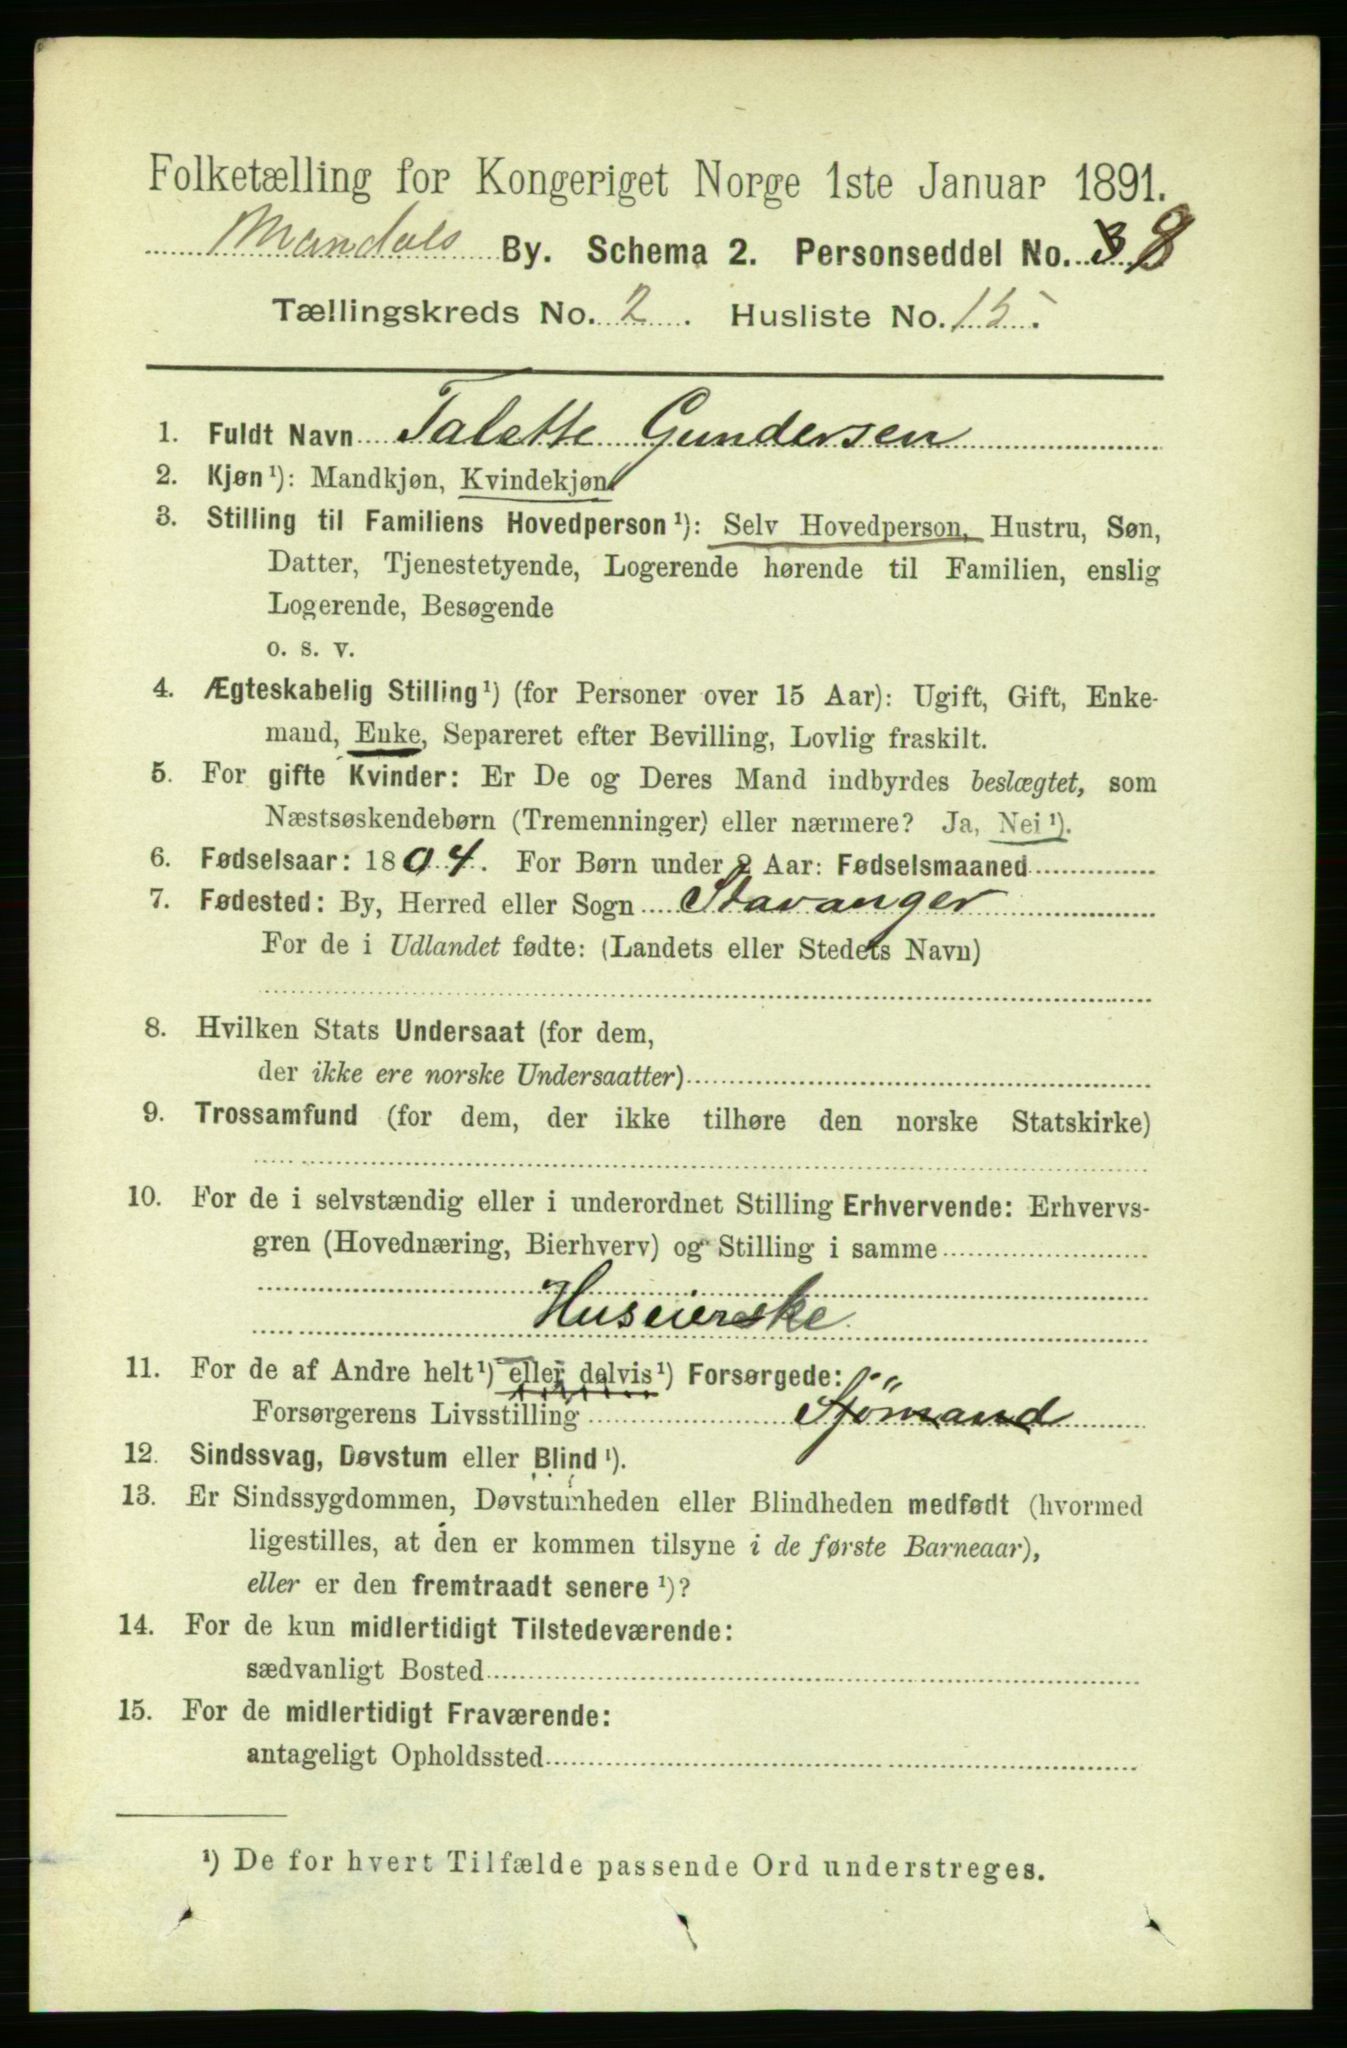 Folketælling for Kongeriget Norge 1ste Januar 1891.
Mandals By. Schema 2. Personseddel No. 8
Tællingskreds No. 2. Husliste No. 15.
1. Fuldt Navn Talette Gundersen
2. Kjøn¹): Mandkjøn, Kvindekjøn
3. Stilling til Familiens Hovedperson¹): Selv Hovedperson, Hustru, Søn,
Datter, Tjenestetyende, Logerende hørende til Familien, enslig
Logerende, Besøgende
o. s. v.
4. Ægteskabelig Stilling¹) (for Personer over 15 Aar): Ugift, Gift, Enke-
mand, Enke, Separeret efter Bevilling, Lovlig fraskilt.
5. For gifte Kvinder: Er De og Deres Mand indbyrdes beslægtet, som
Næstsøskendebørn (Tremenninger) eller nærmere? Ja, Nei¹).
6. Fødselsaar: 1804. For Børn under 2 Aar: Fødselsmaaned
7. Fødested: By, Herred eller Sogn Stavanger
For de i Udlandet fødte: (Landets eller Stedets Navn)
8. Hvilken Stats Undersaat (for dem,
der ikke ere norske Undersaatter)
9. Trossamfund (for dem, der ikke tilhøre den norske Statskirke)
10. For de i selvstændig eller i underordnet Stilling Erhvervende: Erhvervs-
gren (Hovednæring, Bierhverv) og Stilling i samme
Huseierske
11. For de af Andre helt¹) eller delvis¹) Forsørgede:
Forsørgerens Livsstilling Sjømand
12. Sindssvag, Døvstum eller Blind¹).
13. Er Sindssygdommen, Døvstumheden eller Blindheden medfødt (hvormed
ligestilles, at den er kommen tilsyne i de første Barneaar),
eller er den fremtraadt senere¹)?
14. For de kun midlertidigt Tilstedeværende:
sædvanligt Bosted
15. For de midlertidigt Fraværende:
antageligt Opholdssted
¹) De for hvert Tilfælde passende Ord understreges.